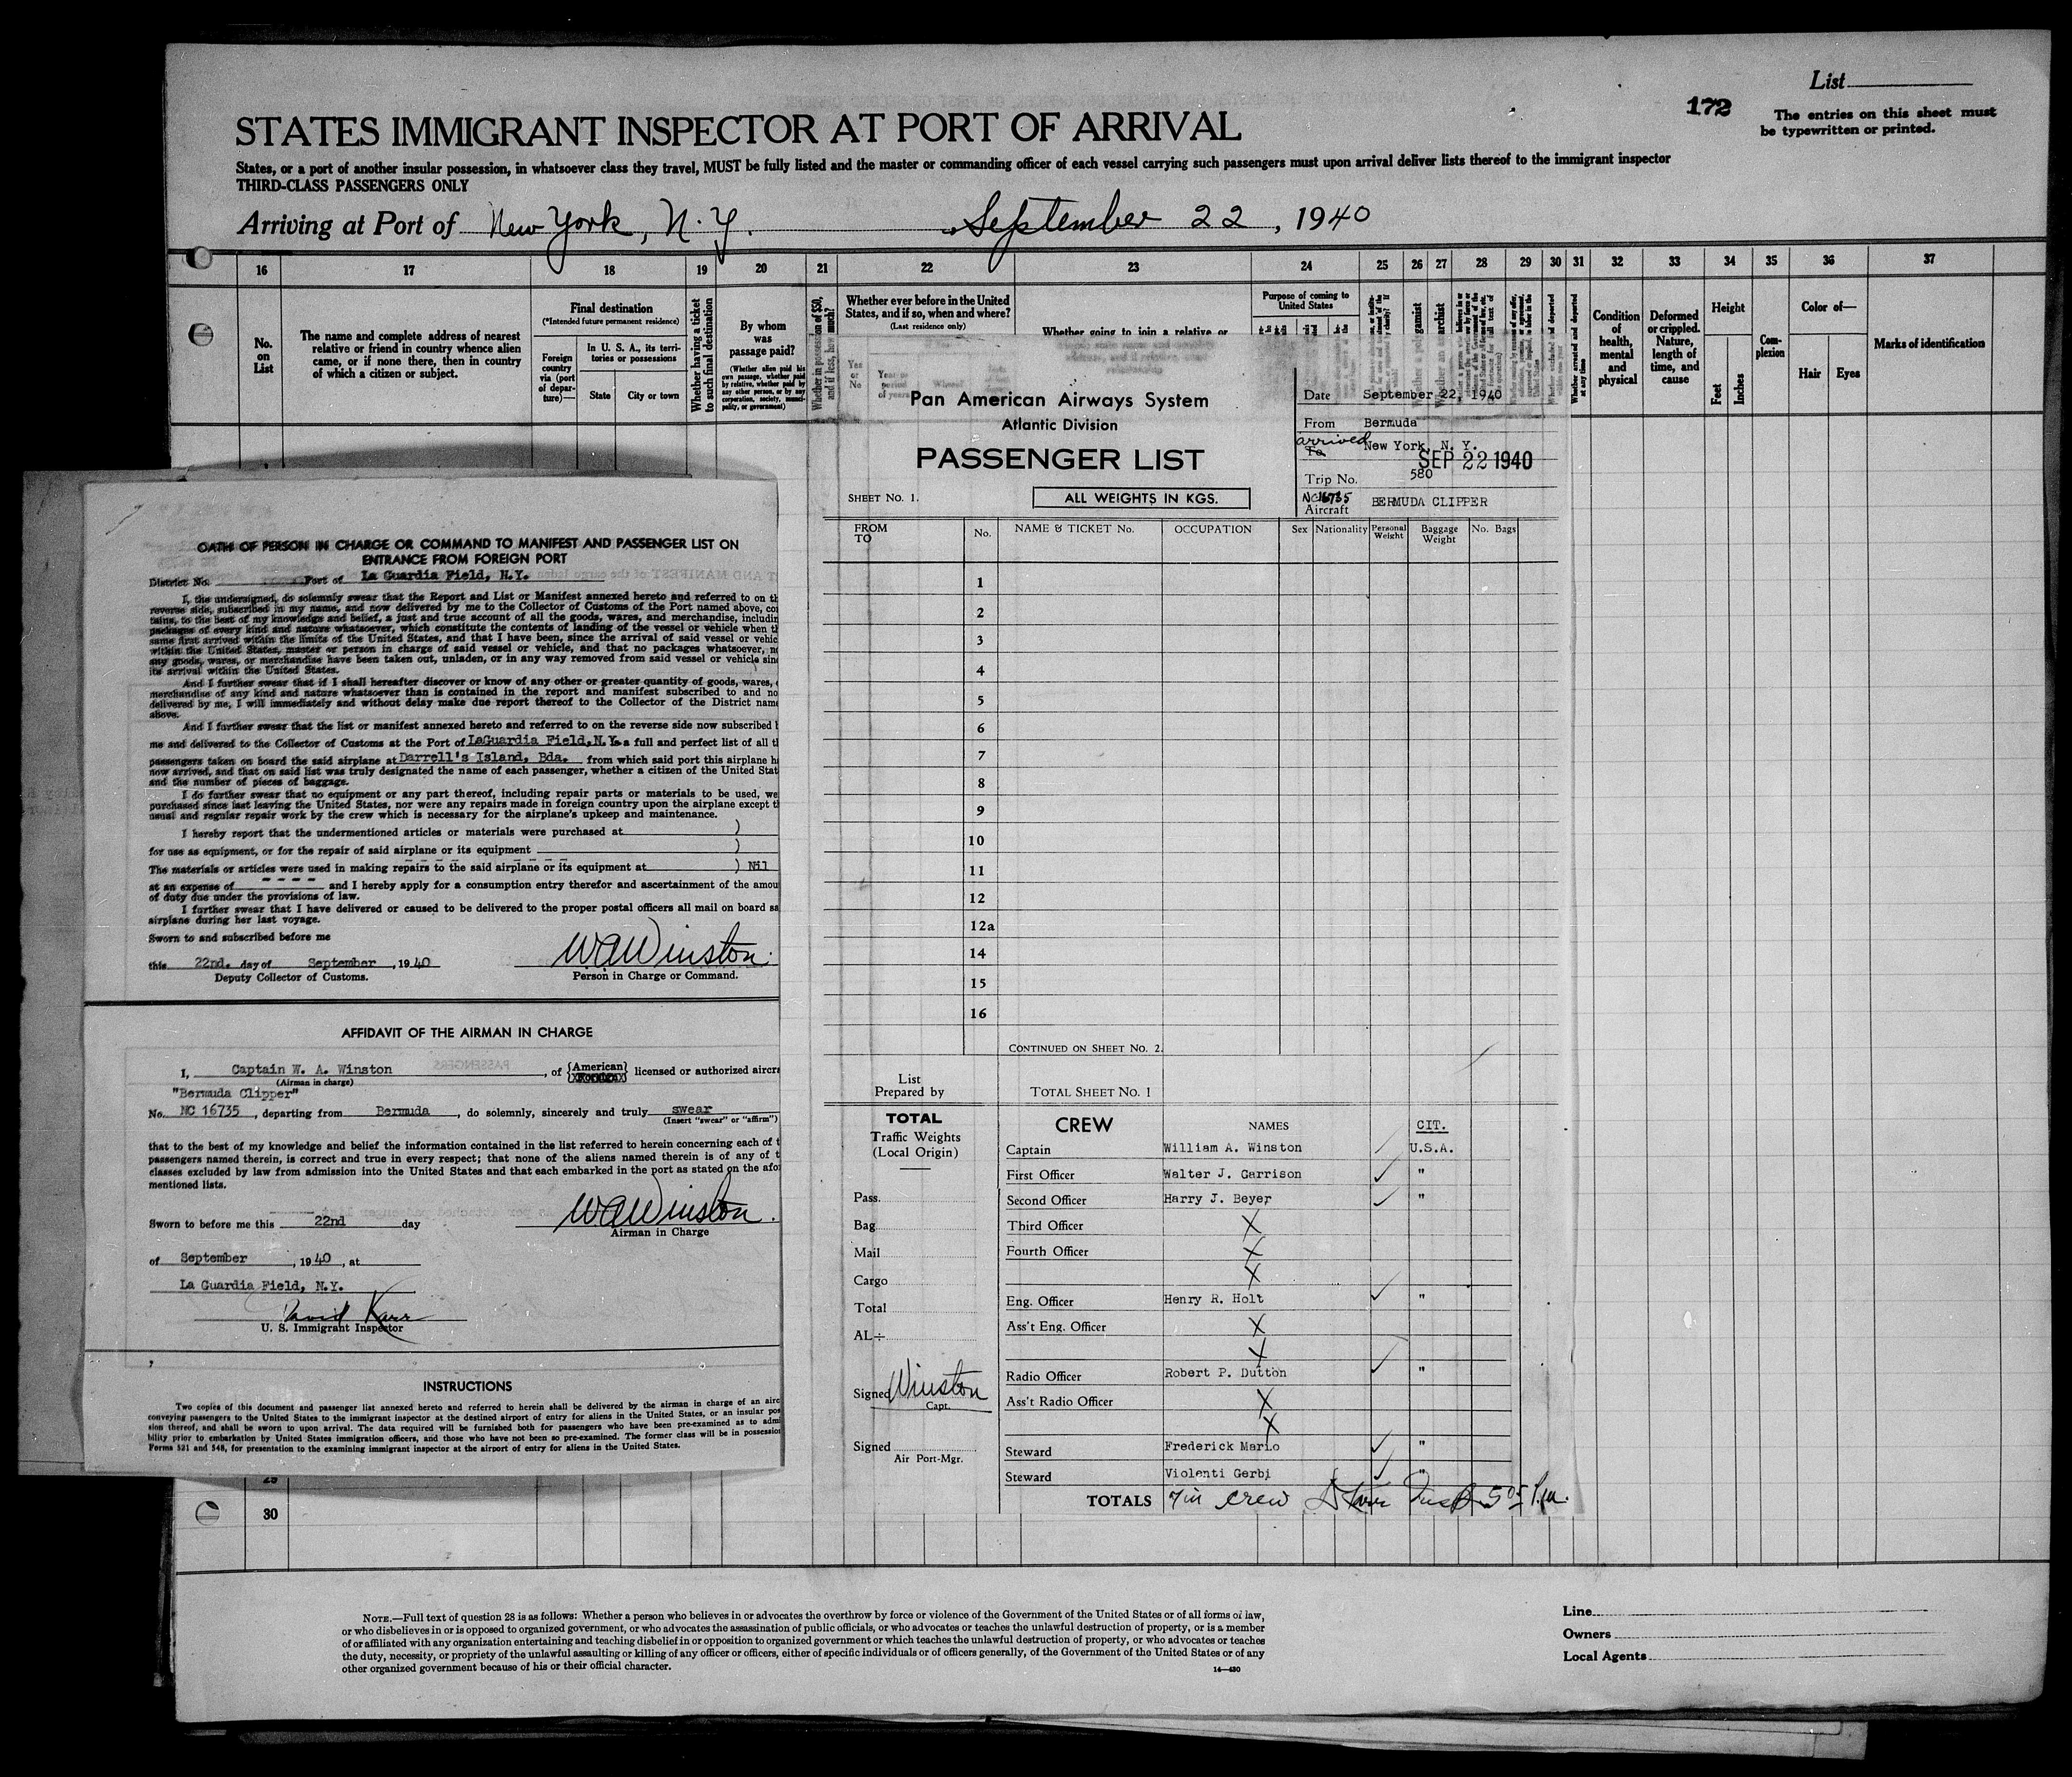 List
172
The entries on this sheet must
be typewritten or printed.
STATES IMMIGRANT INSPECTOR AT PORT OF ARRIVAL
States, or a port of another insular possession, in whatsoever class they travel, MUST be fully listed and the master or commanding officer of each vessel carrying such passengers must upon arrival deliver lists thereof to the immigrant inspector
THIRD-CLASS PASSENGERS ONLY
Arriving at Port of New York, N.Y. September 22, 1940
16 17 18 19 20 21 22 23 24 25 26 27 28 29 30 31 32 33 34 35 36 37
No.
on
List
The name and complete address of nearest
relative or friend in country whence alien
came, or if none there, then in country
of which a citizen or subject.
Final destination
(*Intended future permanent residence)
Foreign
country
via (port
of depar-
ture)—
In U. S. A., its terri-
tories or possessions
State
City or town
Whether having a ticket
to such final destination
By whom
was
passage paid?
(Whether alien paid his
own passage, whether paid
by relative, whether paid by
any other person, or by any
corporation, society, munici-
pality, or government)
Whether in possession of $50,
and if less, how much?
Whether ever before in the United
States, and if so, when and where?
(Last residence only)
Yes
or
No
Year or
period
of years
Whether going to join a relative or
Purpose of coming to
United States
Whether a polygamist
Whether an anarchist
Whether arrested and deported
at any time
Condition
of
health,
mental
and
physical
Deformed
or crippled.
Nature,
length of
time, and
cause
Height
Feet
Inches
Com-
plexion
Color of—
Hair
Eyes
Marks of identification
OATH OF PERSON IN CHARGE OR COMMAND TO MANIFEST AND PASSENGER LIST ON
ENTRANCE FROM FOREIGN PORT
District No. Port of La Guardia Field, N.Y.
I, the undersigned, do solemnly swear that the Report and List or Manifest annexed hereto and referred to on th
reverse side, subscribed in my name, and now delivered by me to the Collector of Customs of the Port named above, co
tains, to the best of my knowledge and belief, a just and true account of all the goods, wares, and merchandise, includin
packages of every kind and nature whatsoever, which constitute the contents of landing of the vessel or vehicle when t
same first arrived within the limits of the United States, and that I have been, since the arrival of said vessel or vehic
within the United States, master or person in charge of said vessel or vehicle, and that no packages whatsoever, n
any goods, wares, or merchandise have been taken out, unladen, or in any way removed from said vessel or vehicle sin
its arrival within the United States.
And I further swear that if I shall hereafter discover or know of any other or greater quantity of goods, wares,
merchandise of any kind and nature whatsoever than is contained in the report and manifest subscribed to and no
delivered by me, I will immediately and without delay make due report thereof to the Collector of the District name
above.
And I further swear that the list or manifest annexed hereto and referred to on the reverse side now subscribed b
me and delivered to the Collector of Customs at the Port of LaGuardia Field, N.Y. a full and perfect list of all t
passengers taken on board the said airplane at Darrell's Island, Bda. from which said port this airplane h
now arrived, and that on said list was truly designated the name of each passenger, whether a citizen of the United Stat
and the number of pieces of baggage.
I do further swear that no equipment or any part thereof, including repair parts or materials to be used, we
purchased since last leaving the United States, nor were any repairs made in foreign country upon the airplane except t
usual and regular repair work by the crew which is necessary for the airplane's upkeep and maintenance.
I hereby report that the undermentioned articles or materials were purchased at )
for use as equipment, or for the repair of said airplane or its equipment )
The materials or articles were used in making repairs to the said airplane or its equipment at ) Nil
at an expense of - - - - and I hereby apply for a consumption entry therefor and ascertainment of the amou
of duty due under the provisions of law.
I further swear that I have delivered or caused to be delivered to the proper postal officers all mail on board sa
airplane during her last voyage.
Sworn to and subscribed before me
this 22nd. day of September, 1940 WAWinston.
Deputy Collector of Customs. Person in Charge or Command.
AFFIDAVIT OF THE AIRMAN IN CHARGE
I, Captain W. A. Winston, of {American} licensed or authorized aircra
(Airman in charge)
"Bermuda Clipper"
No. NC 16735, departing from Bermuda, do solemnly, sincerely and truly swear
(Insert "swear" or "affirm")
that to the best of my knowledge and belief the information contained in the list referred to herein concerning each of t
passengers named therein, is correct and true in every respect; that none of the aliens named therein is of any of t
classes excluded by law from admission into the United States and that each embarked in the port as stated on the afo
mentioned lists.
Sworn to before me this 22nd day WAWinston.
Airman in Charge
of September, 1940, at
La Guardia Field, N.Y.
David Karr
U. S. Immigrant Inspector
INSTRUCTIONS
Two copies of this document and passenger list annexed hereto and referred to herein shall be delivered by the airman in charge of an airc
conveying passengers to the United States to the immigrant inspector at the destined airport of entry for aliens in the United States, or an insular pos
sion thereof, and shall be sworn to upon arrival. The data required will be furnished both for passengers who have been pre-examined as to admi
bility prior to embarkation by United States immigration officers, and those who have not been so pre-examined. The former class will be in possessio
Forms 521 and 548, for presentation to the examining immigrant inspector at the airport of entry for aliens in the United States.
Pan American Airways System
Atlantic Division
PASSENGER LIST
SHEET No. 1.
ALL WEIGHTS IN KGS.
Date September 22, 1940
From Bermuda
arrived
To New York, N. Y.
SEP 22 1940
Trip No. 580
NC16735
Aircraft BERMUDA CLIPPER
FROM
TO
No.
NAME & TICKET No.
OCCUPATION
Sex
Nationality
Personal
Weight
Baggage
Weight
No. Bags
1
2
3
4
5
6
7
8
9
10
11
12
12a
14
15
16
CONTINUED ON SHEET No. 2.
List
Prepared by
TOTAL SHEET No. 1
TOTAL
Traffic Weights
(Local Origin)
Pass.
Bag
Mail
Cargo
Total
AL÷
Signed Winston
Capt.
Signed
Air Port-Mgr.
CREW NAMES CIT.
Captain William A. Winston U.S.A.
First Officer Walter J. Garrison "
Second Officer Harry J. Beyer "
Third Officer X
Fourth Officer X
X
Eng. Officer Henry R. Holt "
Ass't Eng. Officer X
X
Radio Officer Robert P. Dutton "
Ass't Radio Officer X
X
Steward Frederick Mario "
Steward Violenti Gerbi "
TOTALS 7 in crew D Karr Insp. 5 05 P.m.
29
30
NOTE.—Full text of question 28 is as follows: Whether a person who believes in or advocates the overthrow by force or violence of the Government of the United States or of all forms of law,
or who disbelieves in or is opposed to organized government, or who advocates the assassination of public officials, or who advocates or teaches the unlawful destruction of property, or is a member
of or affiliated with any organization entertaining and teaching disbelief in or opposition to organized government or which teaches the unlawful destruction of property, or who advocates or teaches
the duty, necessity, or propriety of the unlawful assaulting or killing of any officer or officers, either of specific individuals or of officers generally, of the Government of the United States or of any
other organized government because of his or their official character.
14—430
Line
Owners
Local Agents